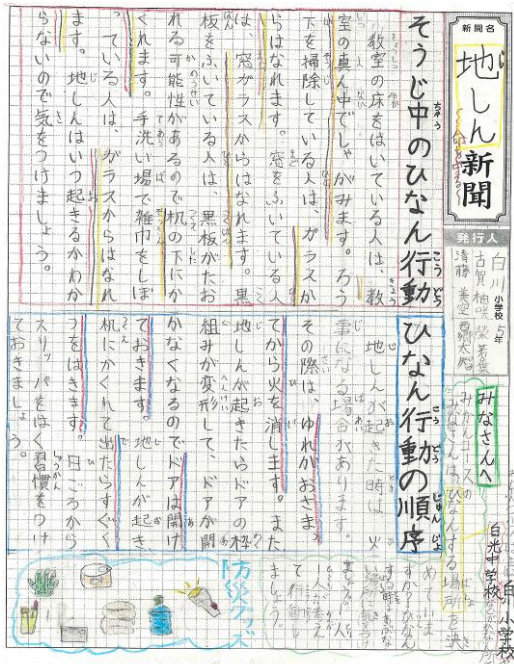 新聞名
地しん新聞
〜命を守る〜
発行人
白川小学校5年
そうじ中のひなん行動
教室の床をはいている人は、教
室の真ん中でしゃがみます。ろう
下を掃除している人は、ガラスか
らはなれます。窓をふいている人
は、窓ガラスからはなれます。黒
板をふいている人は、黒板がたお
れる可能性があるので机の下にか
くれます。手洗い場で雑巾をしぼ
っている人は、ガラスからはなれ
ます。地しんはいつ起きるかわか
らないので気をつけましょう。
ひなん行動の順序
地しんが起きた時は、火
事になる場合があります。
その際は、ゆれがおさまっ
てから火を消します。また
地しんが起きたらドアの枠
組みが変形して、ドアが開
かなくなるのでドアは開け
ておきます。地しんが起き、
机にかくれて出たらすぐく
つをはきます。日ごろから
スリッパをはく習慣をつけ
ておきましょう。
みなさんへ
みなさんは、ひなんする場所を決
めていま
すか?ひなん
ましょう。
白川小学校
白光中学校
防災グッズ